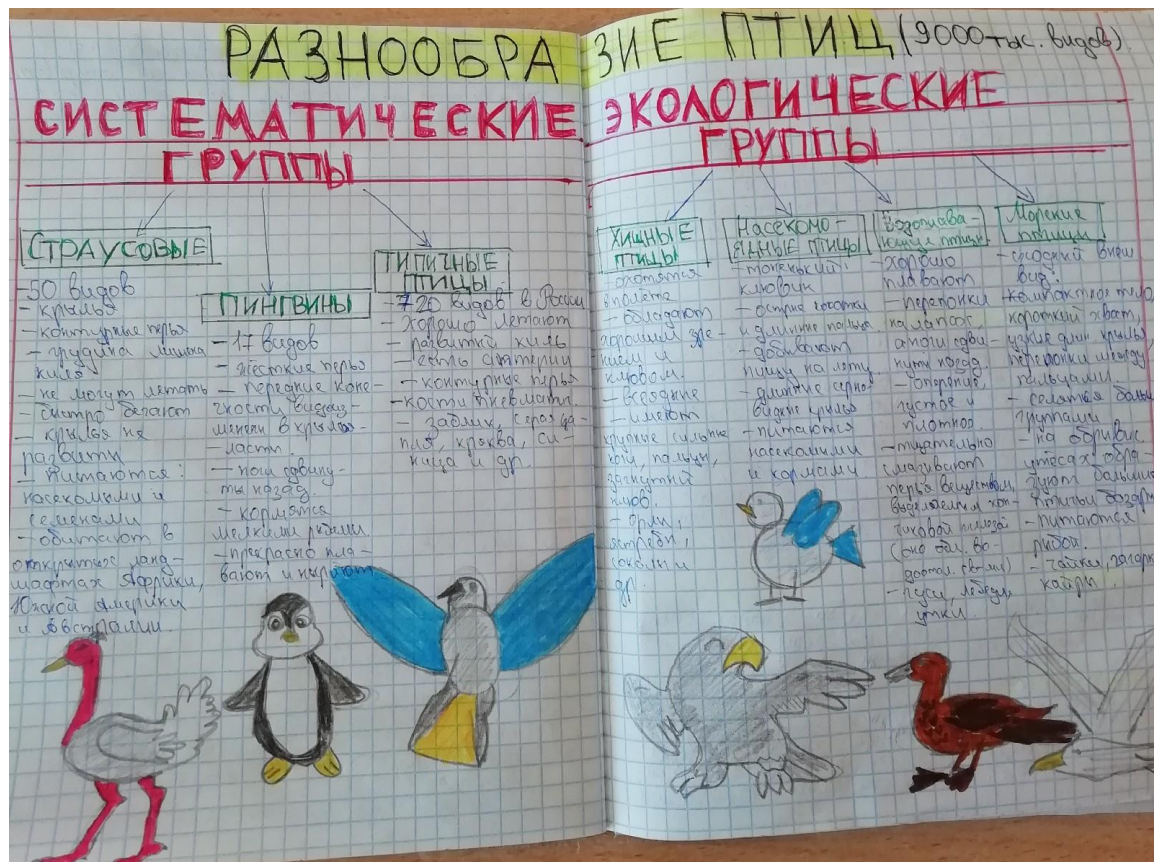 РАЗНООБРАЗИЕ ПТИЦ (9000 тыс. видов)
СИСТЕМАТИЧЕСКИЕ
ГРУППЫ
СТРАУСОВЫЕ
-50 видов
- крылья
- контурные перья
- грудина лишена
киля
- не могут летать
- быстро бегают
- крылья не
развиты
- питаются:
насекомыми и
семенами
- обитают в
открытых ланд-
шафтах Африки,
Южной Америки
и Австралии.
ПИНГВИНЫ
-17 видов
- жёсткие перья
- передние коне-
чности видоиз-
менены в крылья-
ласты.
- ноги сдвину-
ты назад.
- кормятся
мелкими рыбами
- прекрасно пла-
вают и ныряют
ТИПИЧНЫЕ
ПТИЦЫ
-720 видов в России
- хорошо летают
- развитый киль
- есть
- контурные перья
- кости пневмати.
- зяблик, серая ца-
пля, кряква, си-
ница и др.
ЭКОЛОГИЧЕСКИЕ
ГРУППЫ
ХИЩНЫЕ
ПТИЦЫ
- охотятся
в полете
- обладают
хорошим зре-
нием и
клювом.
- всеядные
- имеют
крупные сильные
ноги, пальцы,
загнутый
клюв.
- орлы,
ястребы,
соколы и
др.
НАСЕКОМО-
ЯДНЫЕ ПТИЦЫ
- тоненький
клювик
- острые коготки
и длинные пальцы
- добывают
пищу на лету
- длинные серпо-
видные крылья
- питаются
насекомыми
и кормами
Водоплава-
ющие птицы
- хорошо
плавают
- перепонки
на лапах,
а ноги сдви-
нуты назад.
- оперение
густое и
плотное.
- тщательно
смазывают
перья веществом,
выделяемым коп-
чиковой железой
(оно обл. во-
доотал. св-ми)
- гуси, лебеди,
утки
Морские
птицы
- сходный внеш
вид:
компактное тело,
короткий хвост,
узкие длин крылья,
перепонки между
пальцами.
- селятся больш
группами
- на обрывис
утесах обра-
зуют большие
птичьи базары
- питаются
рыбой.
- чайки, гагарки
кайры.